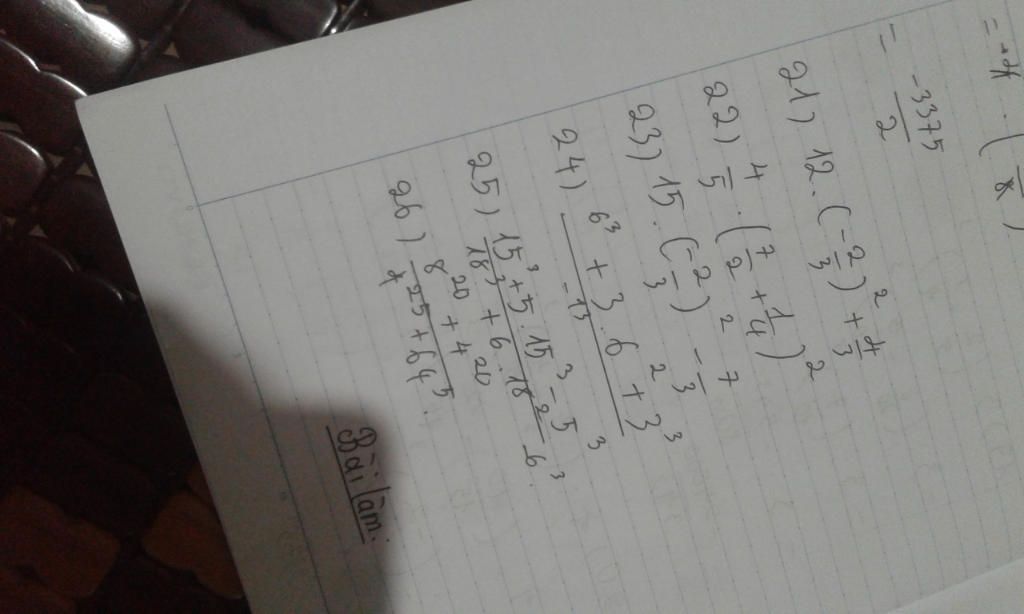 = \frac{-3375}{2}
21) 12 . (-\frac{2}{3})^2 + \frac{4}{3}
22) \frac{4}{5} . (\frac{7}{2} + \frac{1}{4})^2
23) 15 . (-\frac{2}{3})^2 - \frac{7}{3}
24) \frac{6^3 + 3 . 6^2 + 3^3}{-13}
25) \frac{15^3 + 5 . 15^3 - 5^3}{18^3 + 6 . 18^2 - 6^3} .
26) \frac{8^{20} + 4^{20}}{4^{25} + 64^5} .
Bài làm.